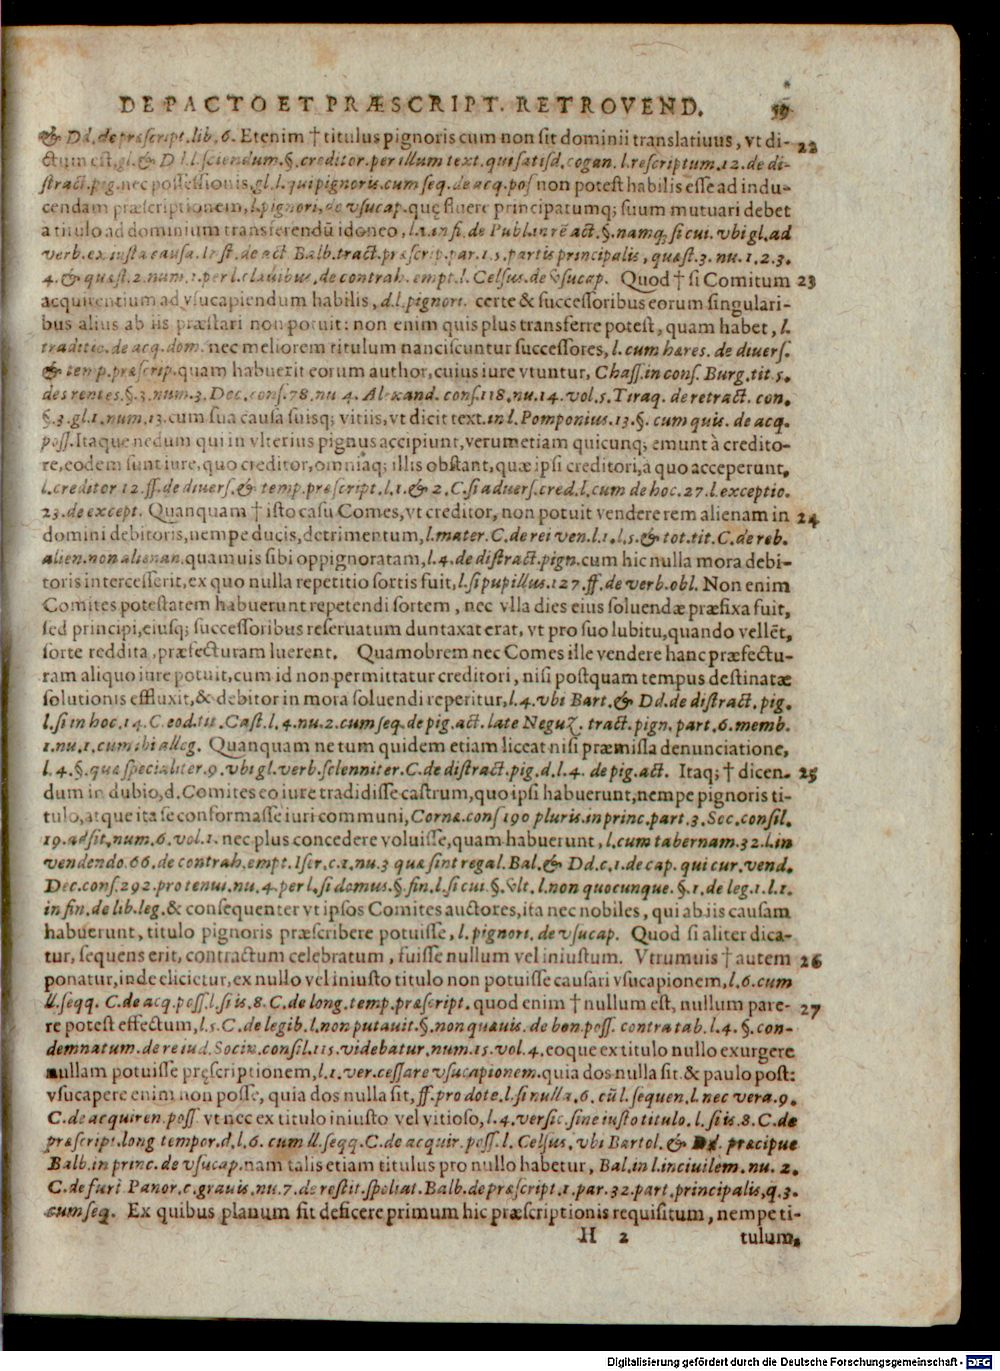 DE PACTO ET PRÆSCRIPT. RETROVEND. 59
& Dd. de præscript. lib. 6. Etenim † titulus pignoris cum non sit dominii translatiuus, vt di- 22
ctum est, gl. & D l. l. sciendum. §. creditor. per illum text. qui satisd. cogan. l. rescriptum. 12. de di-
stract. pig. nec possessionis, gl. l. qui pignoris. cum seq. de acq. pos non potest habilis esse ad indu-
cendam præscriptionem, l. pignori, de vsucap. quę fluere principatumq; suum mutuari debet
a titulo ad dominium transferendū idoneo, l. 1. in fi. de Publ. in rē act. §. namq; si cui. vbi gl. ad
verb. ex iusta causa. Inst. de act Balb. tract. præscrip. par. 1. 5. partis principalis, quæst. 3. nu. 1. 2. 3.
4. & quæst. 2. num. 1. per l. clauibus, de contrah. empt. l. Celsus. de vsucap. Quod † si Comitum 23
acquirentium ad vsucapiendum habilis, d. l. pignori. certe & successoribus eorum singulari-
bus alius ab iis præstari non potuit: non enim quis plus transferre potest, quam habet, l.
traditio. de acq. dom. nec meliorem titulum nanciscuntur successores, l. cum hæres. de diuers.
& temp. præscrip. quam habuerit eorum author, cuius iure vtuntur, Chass. in cons. Burg. tit. 5.
des rentes. §. 3. num. 3. Dec. cons. 78. nu 4. Alexand. cons. 118. nu. 14. vol. 5. Tiraq. de retract. con.
§. 3. gl. 1. num. 13. cum sua causa suisq; vitiis, vt dicit text. in l. Pomponius. 13. §. cum quis. de acq.
poss. Itaque nedum qui in vlterius pignus accipiunt, verumetiam quicunq; emunt à credito-
re, eodem sunt iure, quo creditor, omniaq; illis obstant, quæ ipsi creditori, a quo acceperunt,
l. creditor 12. ff. de diuers. & temp. præscript. l. 1. & 2. C. si aduers. cred. l. cum de hoc. 27. l. exceptio.
23. de except. Quanquam † isto casu Comes, vt creditor, non potuit vendere rem alienam in 24
domini debitoris, nempe ducis, detrimentum, l. mater. C. de rei ven. l. 1. l. 5. & tot. tit. C. de reb.
alien. non alienan. quamuis sibi oppignoratam, l. 4. de distract. pign. cum hic nulla mora debi-
toris intercesserit, ex quo nulla repetitio sortis fuit, l. si pupillus. 127. ff. de verb. obl. Non enim
Comites potestatem habuerunt repetendi sortem, nec vlla dies eius soluendæ præfixa fuit,
sed principi, eiusq; successoribus reseruatum duntaxat erat, vt pro suo lubitu, quando vellēt,
sorte reddita, præfecturam luerent. Quamobrem nec Comes ille vendere hanc præfectu-
ram aliquo iure potuit, cum id non permittatur creditori, nisi postquam tempus destinatæ
solutionis effluxit, & debitor in mora soluendi reperitur, l. 4. vbi Bart. & Dd. de distract. pig.
l. si in hoc. 14. C. eod. tit. Cast. l. 4. nu. 2. cum seq. de pig. act. late Neguz. tract. pign. part. 6. memb.
1. nu. 1. cum ibi alleg. Quanquam ne tum quidem etiam liceat nisi præmissa denunciatione,
l. 4. §. quæ specialiter. 9. vbi gl. verb. solenniter. C. de distract. pig. d. l. 4. de pig. act. Itaq; † dicen- 25
dum in dubio, d. Comites eo iure tradidisse castrum, quo ipsi habuerunt, nempe pignoris ti-
tulo, atque ita se conformasse iuri communi, Cornæ. cons 190 pluris. in princ. part. 3. Soc. consil.
19. adsit, num. 6. vol. 1. nec plus concedere voluisse, quam habuerunt, l. cum tabernam. 32. l. in
vendendo. 66. de contrah. empt. Iser. c. 1. nu. 3 quæ sint regal. Bal. & Dd. c. 1. de cap. qui cur. vend.
Dec. cons. 292. pro tenui. nu. 4. per l. si domus. §. fin. l. si cui. §. vlt. l. non quocunque. §. 1. de leg. 1. l. 1.
in fin. de lib. leg. & consequenter vt ipsos Comites auctores, ita nec nobiles, qui ab iis causam
habuerunt, titulo pignoris præscribere potuisse, l. pignori. de vsucap. Quod si aliter dica-
tur, sequens erit, contractum celebratum, fuisse nullum vel iniustum. Vtrumuis † autem 26
ponatur, inde elicietur, ex nullo vel iniusto titulo non potuisse causari vsucapionem, l. 6. cum
ll. seqq. C. de acq. poss. l. si is. 8. C. de long. temp. præscript. quod enim † nullum est, nullum pare- 27
re potest effectum, l. 5. C. de legib. l. non putauit. §. non quæuis. de bon. poss. contra tab. l. 4. §. con-
demnatum. de re iud. Socin. consil. 115. videbatur, num. 15. vol. 4. eoque ex titulo nullo exurgere
nullam potuisse pręscriptionem, l. 1. ver. cessare vsucapionem. quia dos nulla sit. & paulo post:
vsucapere enim non posse, quia dos nulla sit, ff. pro dote. l. si nulla. 6. cū l. sequen. l. nec vera. 9.
C. de acquiren. poss. vt nec ex titulo iniusto vel vitioso, l. 4. versic. sine iusto titulo. l. si is. 8. C. de
præscript. long tempor. d. l. 6. cum ll. seqq. C. de acquir. poss. l. Celsus. vbi Bartol. & Dd. præcipue
Balb. in princ. de vsucap. nam talis etiam titulus pro nullo habetur, Bal. in l. inciuilem. nu. 2.
C. de furi Panor. c. grauis. nu. 7. de restit. spoliat. Balb. de præscript. 1. par. 32. part. principalis, q. 3.
cum seq. Ex quibus planum sit deficere primum hic præscriptionis requisitum, nempe ti-
H 2 tulum.
Digitalisierung gefördert durch die Deutsche Forschungsgemeinschaft - DFG